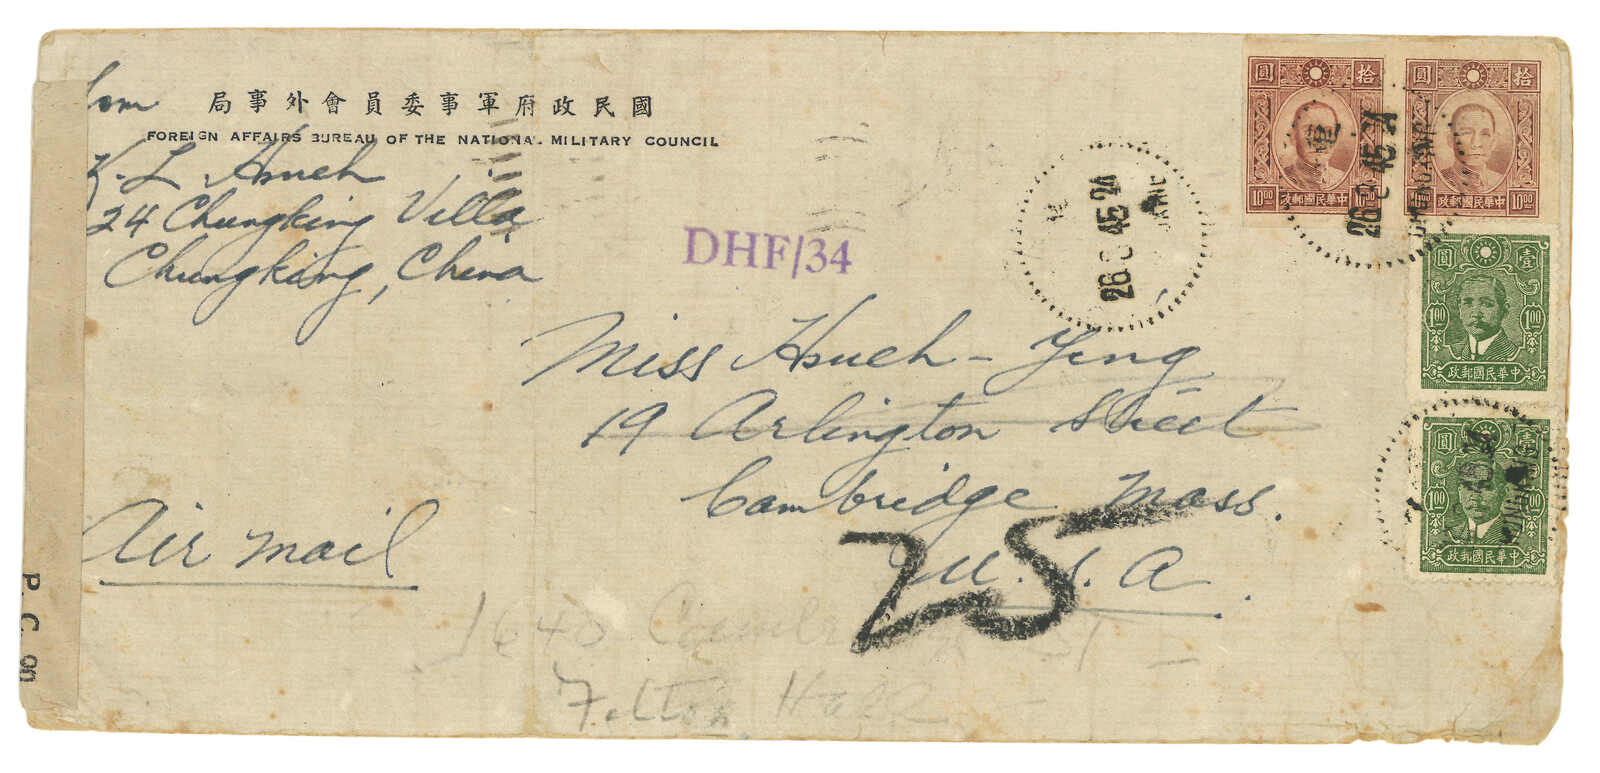 from
國民政府軍事委員會外事局
FOREIGN AFFAIRS BUREAU OF THE NATIONAL MILITARY COUNCIL
K. L. Hsueh
24 Chungking Villa
Chungking, China
DHF/34
26 8 45 24
圓 拾
10.00 中華民國郵政 10.00
圓 拾
10.00 中華民國郵政 10.00
26 8 45 24
圓 壹
1.00 1.00
中華民國郵政
圓 壹
1.00 1.00
中華民國郵政
Miss Hsueh-Ying
19 Arlington Street
Cambridge Mass.
U. S. A.
25
Air mail
1640 Cambridge St
Felton Hall
P. C. 90